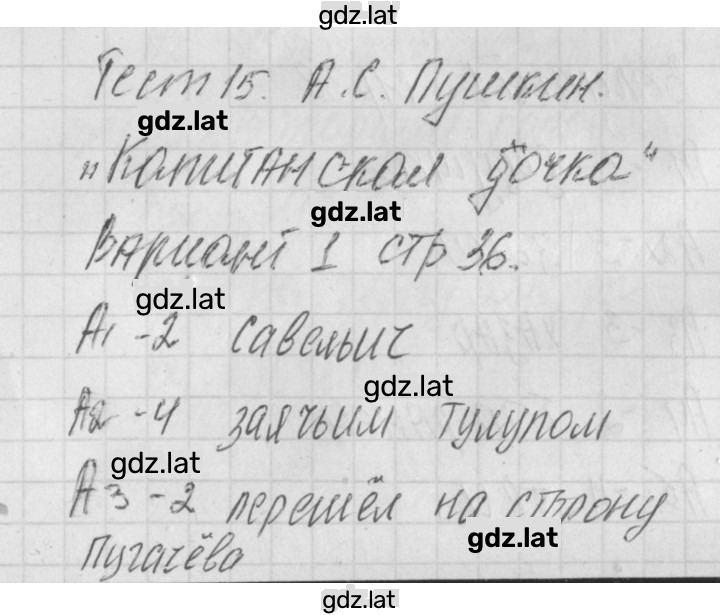 gdz.lat
Тест 15. А.С. Пушкин.
gdz.lat
„Капитанская дочка“
gdz.lat
Вариант 1 стр 36.
gdz.lat
А1 - 2 Савельич
gdz.lat
А2 - 4 заячьим тулупом
gdz.lat
А3 - 2 перешёл на сторону
gdz.lat
Пугачёва
gdz.lat